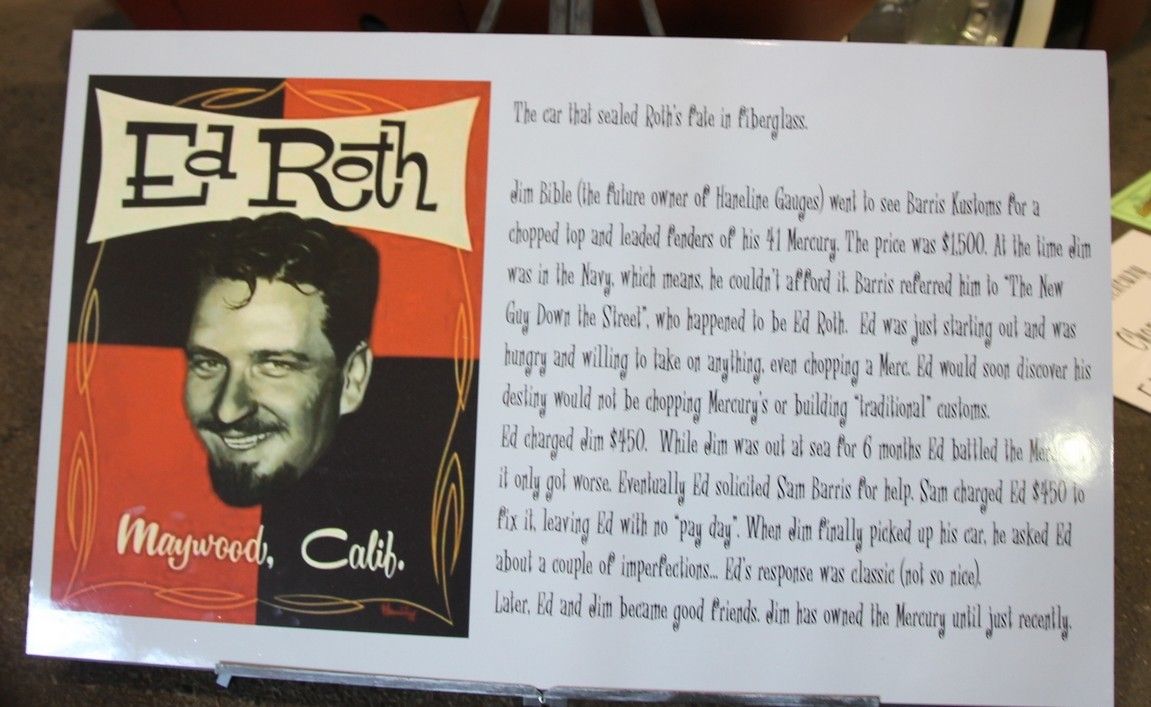 Ed Roth
Maywood, Calif.
The car that sealed Roth's fate in fiberglass.
Jim Bible (the future owner of Haneline Gauges) went to see Barris Kustoms for a
chopped top and leaded fenders of his 41 Mercury. The price was $1,500. At the time Jim
was in the Navy, which means, he couldn't afford it. Barris referred him to "The New
Guy Down the Street", who happened to be Ed Roth. Ed was just starting out and was
hungry and willing to take on anything, even chopping a Merc. Ed would soon discover his
destiny would not be chopping Mercury's or building "traditional" customs.
Ed charged Jim $450. While Jim was out at sea for 6 months Ed battled the
it only got worse. Eventually Ed solicited Sam Barris for help. Sam charged Ed $450 to
fix it, leaving Ed with no "pay day". When Jim finally picked up his car, he asked Ed
about a couple of imperfections... Ed's response was classic (not so nice).
Later, Ed and Jim became good friends. Jim has owned the Mercury until just recently.